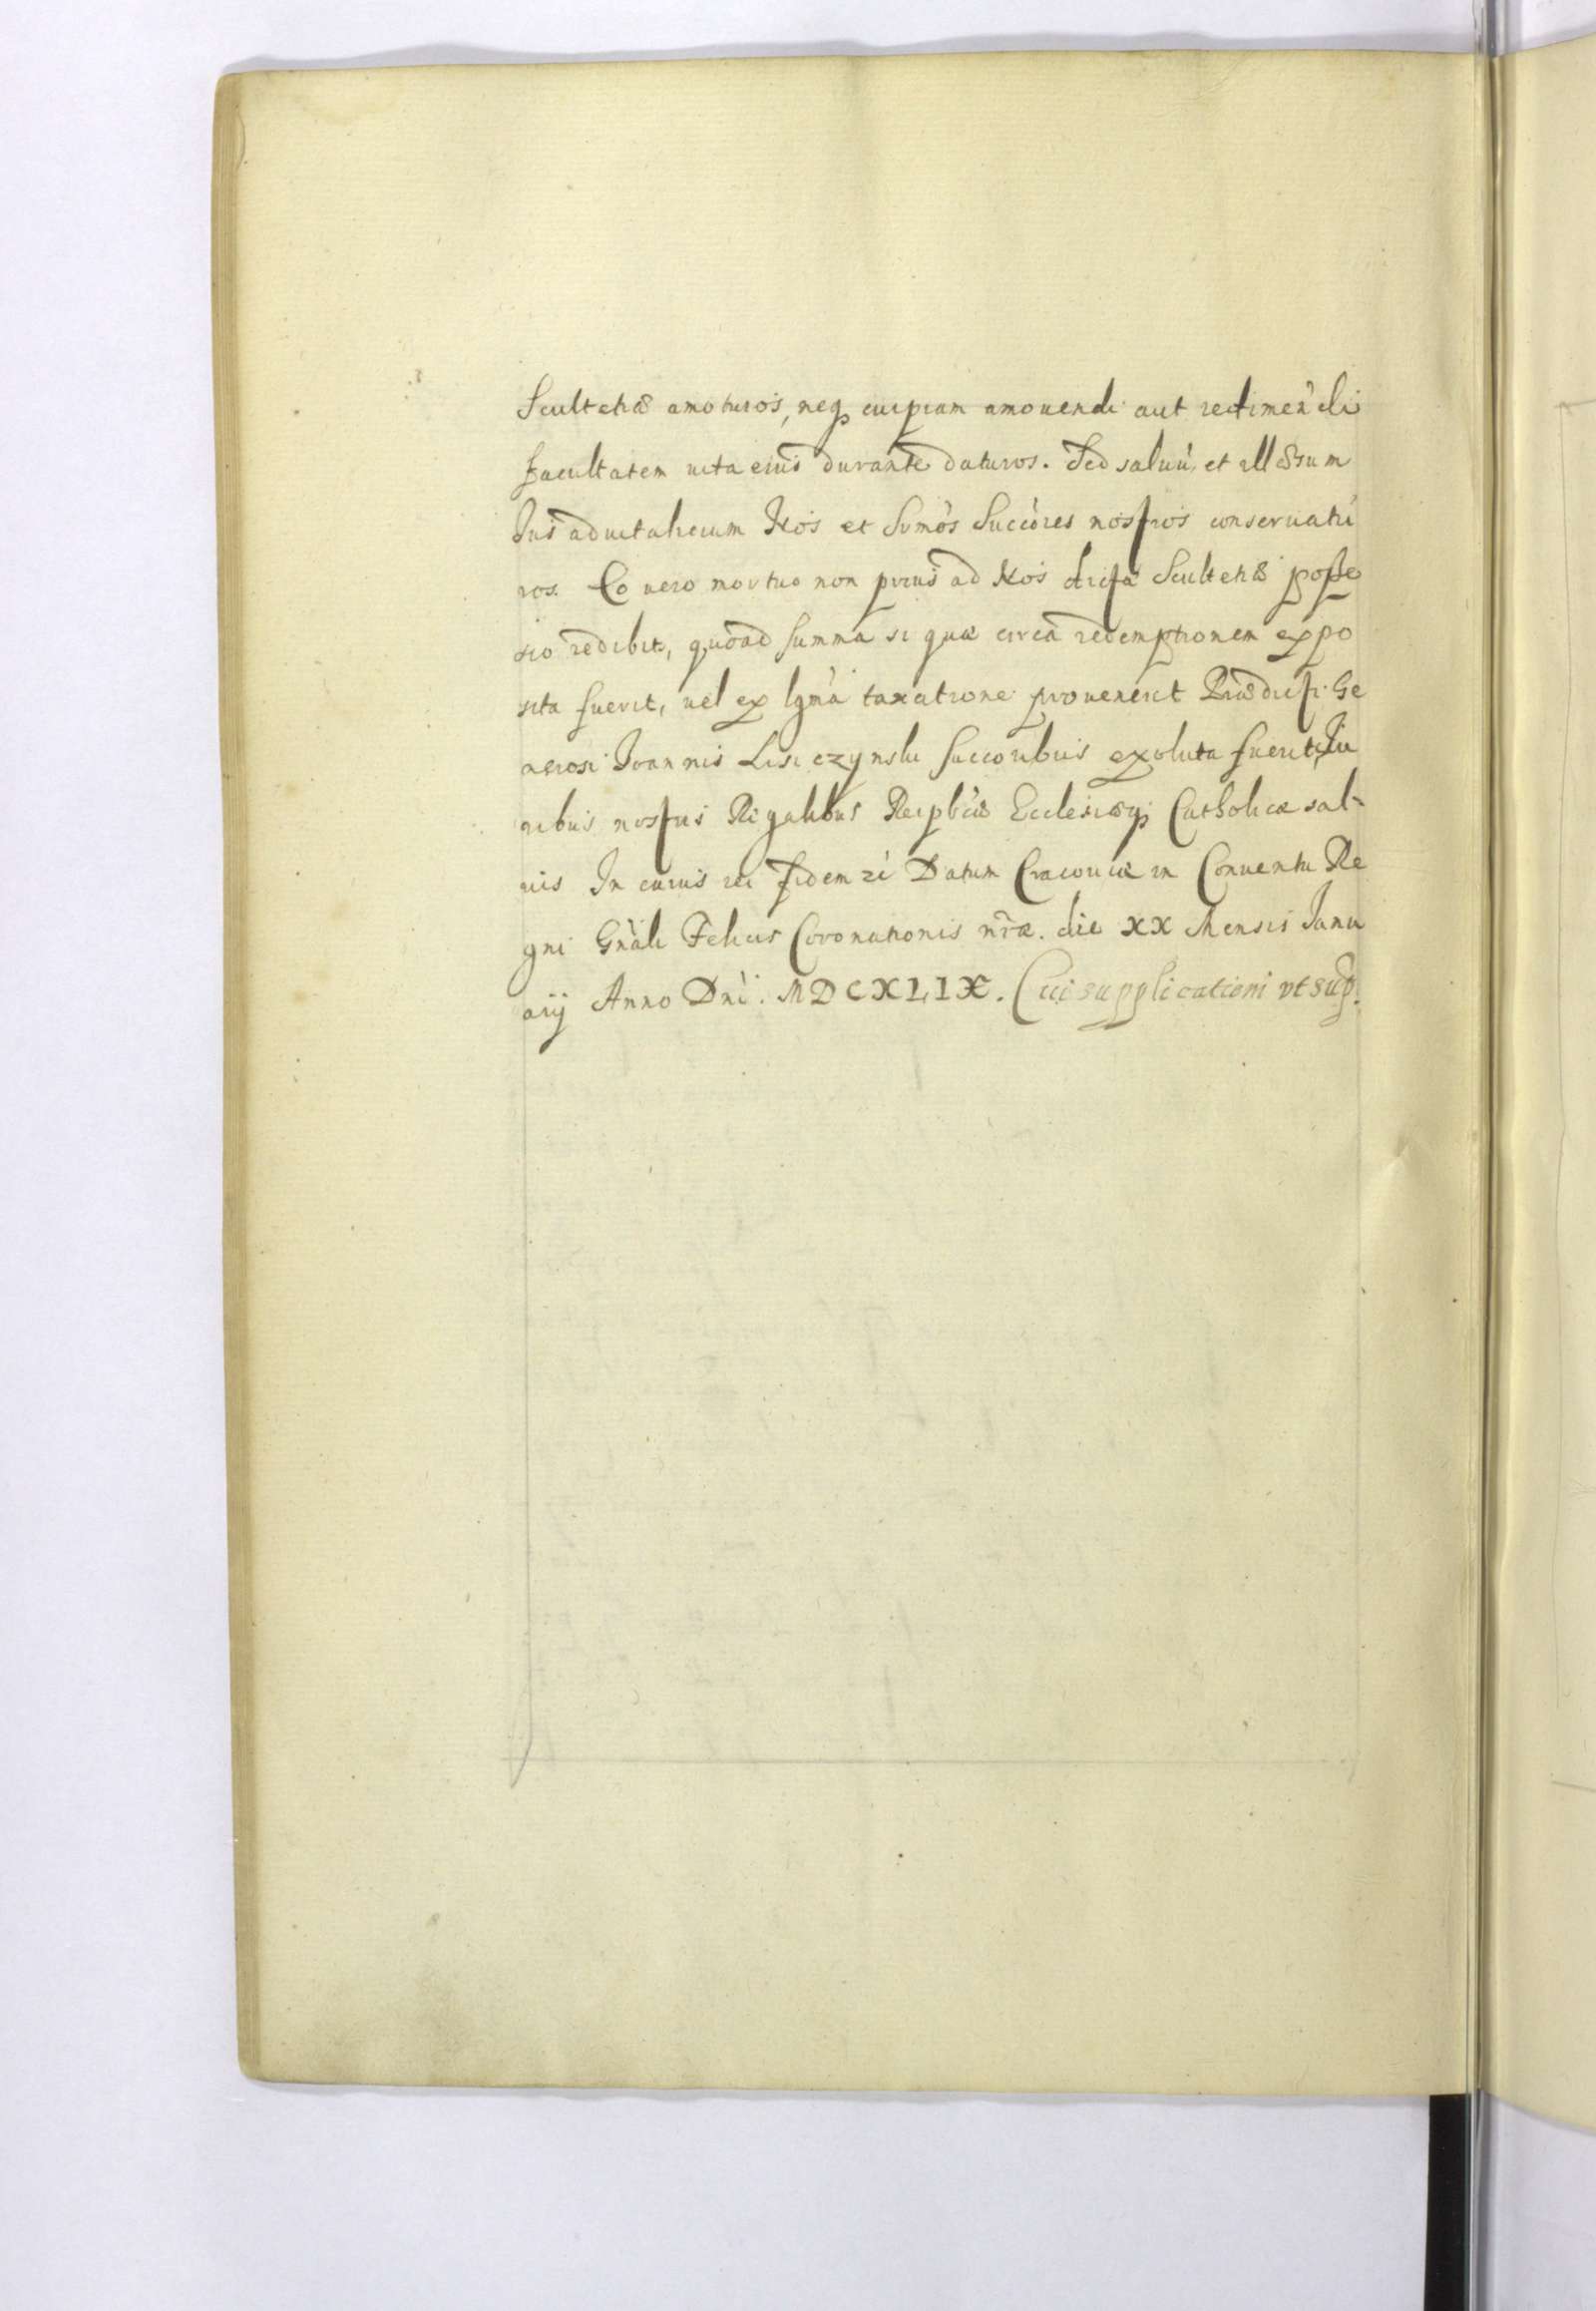 Scultetiæ amoturos, neq cuipiam amouendi aut redimen̄di
facultatem uita eius durante daturos. Sed saluū et illæsum
Ius aduitalicium Nos et Srm̄os Succ̄ores nostros conseruatu
ros. Eo uero mortuo non prius ad Nos dictæ Scultetiæ posse
sio redibit, quoad summa si quæ circa redemptionem expo
sita fuerit, uel ex lgm̄a taxatione prouenerit Prǣdicti Ge
nerosi Joannis Lisiczynski succoribus exoluta fuerit, Ju
ribus nostris Regalibus Reipbcæ Ecclesiæq Catholicæ sal-
uis In cuius rei fidem zc̄ Datum Cracouiæ in Conuentu Re
gni Gn̄ali Felicis Coronationis nr̄æ. die XX Mensis Janu
arij Anno Dn̄i. MDCXLIX. Cui supplicationi vt sup̄.